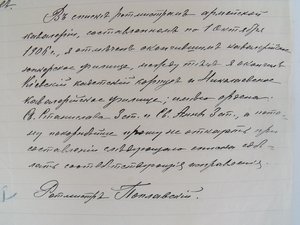 Въ списке ротмистрамъ армейской
кавалерiи, составленномъ по 1 Октября
1906 г., я отмеченъ окончившимъ кавалерiйское
юнкерское училище, между темъ я окончилъ
Кiевскiй кадетскiй корпусъ и Николаевское
кавалерiйское училище; имею ордена
Св. Станислава 3 ст. и Св. Анны 3 ст., а пото-
му покорнейше прошу не отказать при
составленiи следующаго списка сде-
лать соответствующiя исправленiя.
Ротмистръ Поплавскiй.